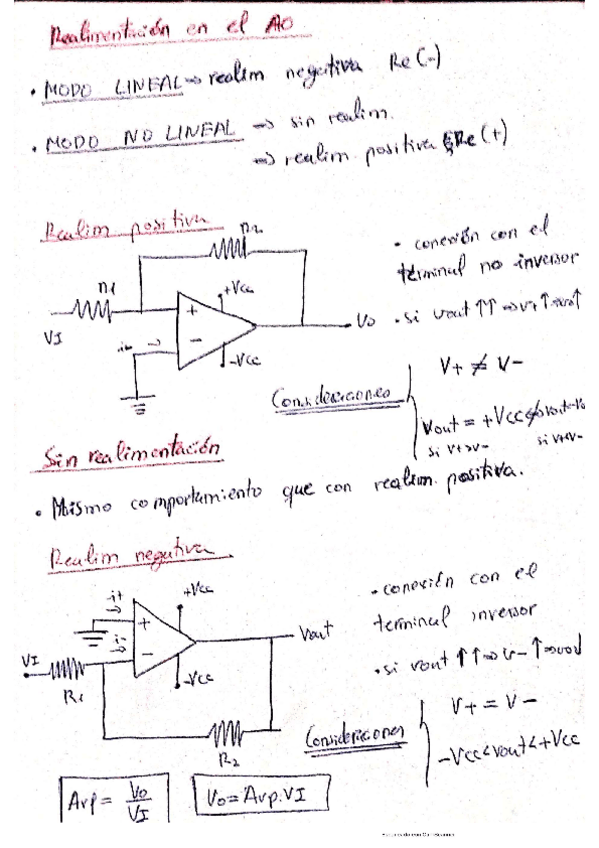 Realimentación en el AO
• MODO LINEAL ⇒ realim negativa Re(-)
• MODO NO LINEAL ⇒ sin realim.
⇒ realim. positiva Re(+)
Realim positiva
R2
R1
+Vcc
VI
+
-
i-
-Vcc
Vo
• conexión con el
terminal no inversor
• si vout ↑↑ ⇒ v+ ↑ ⇒ vout ↑
Consideraciones
V+ ≠ V-
Vout = +Vcc
si V+>V-
si V+<V-
Sin realimentación
• Mismo comportamiento que con realim. positiva.
Realim negativa
i+
+Vcc
+
i-
-
-Vcc
VI
R1
R2
Vout
• conexión con el
terminal inversor
• si vout ↑↑ ⇒ v- ↑ ⇒
Consideraciones
V+ = V-
-Vcc < vout < +Vcc
Avp = Vo/VI
Vo = Avp.VI